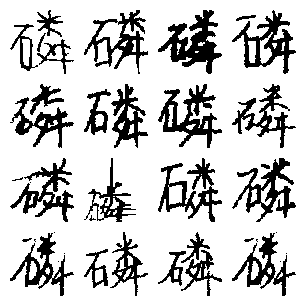 磷磷磷磷
磷磷磷磷
磷磷磷磷
磷磷磷磷